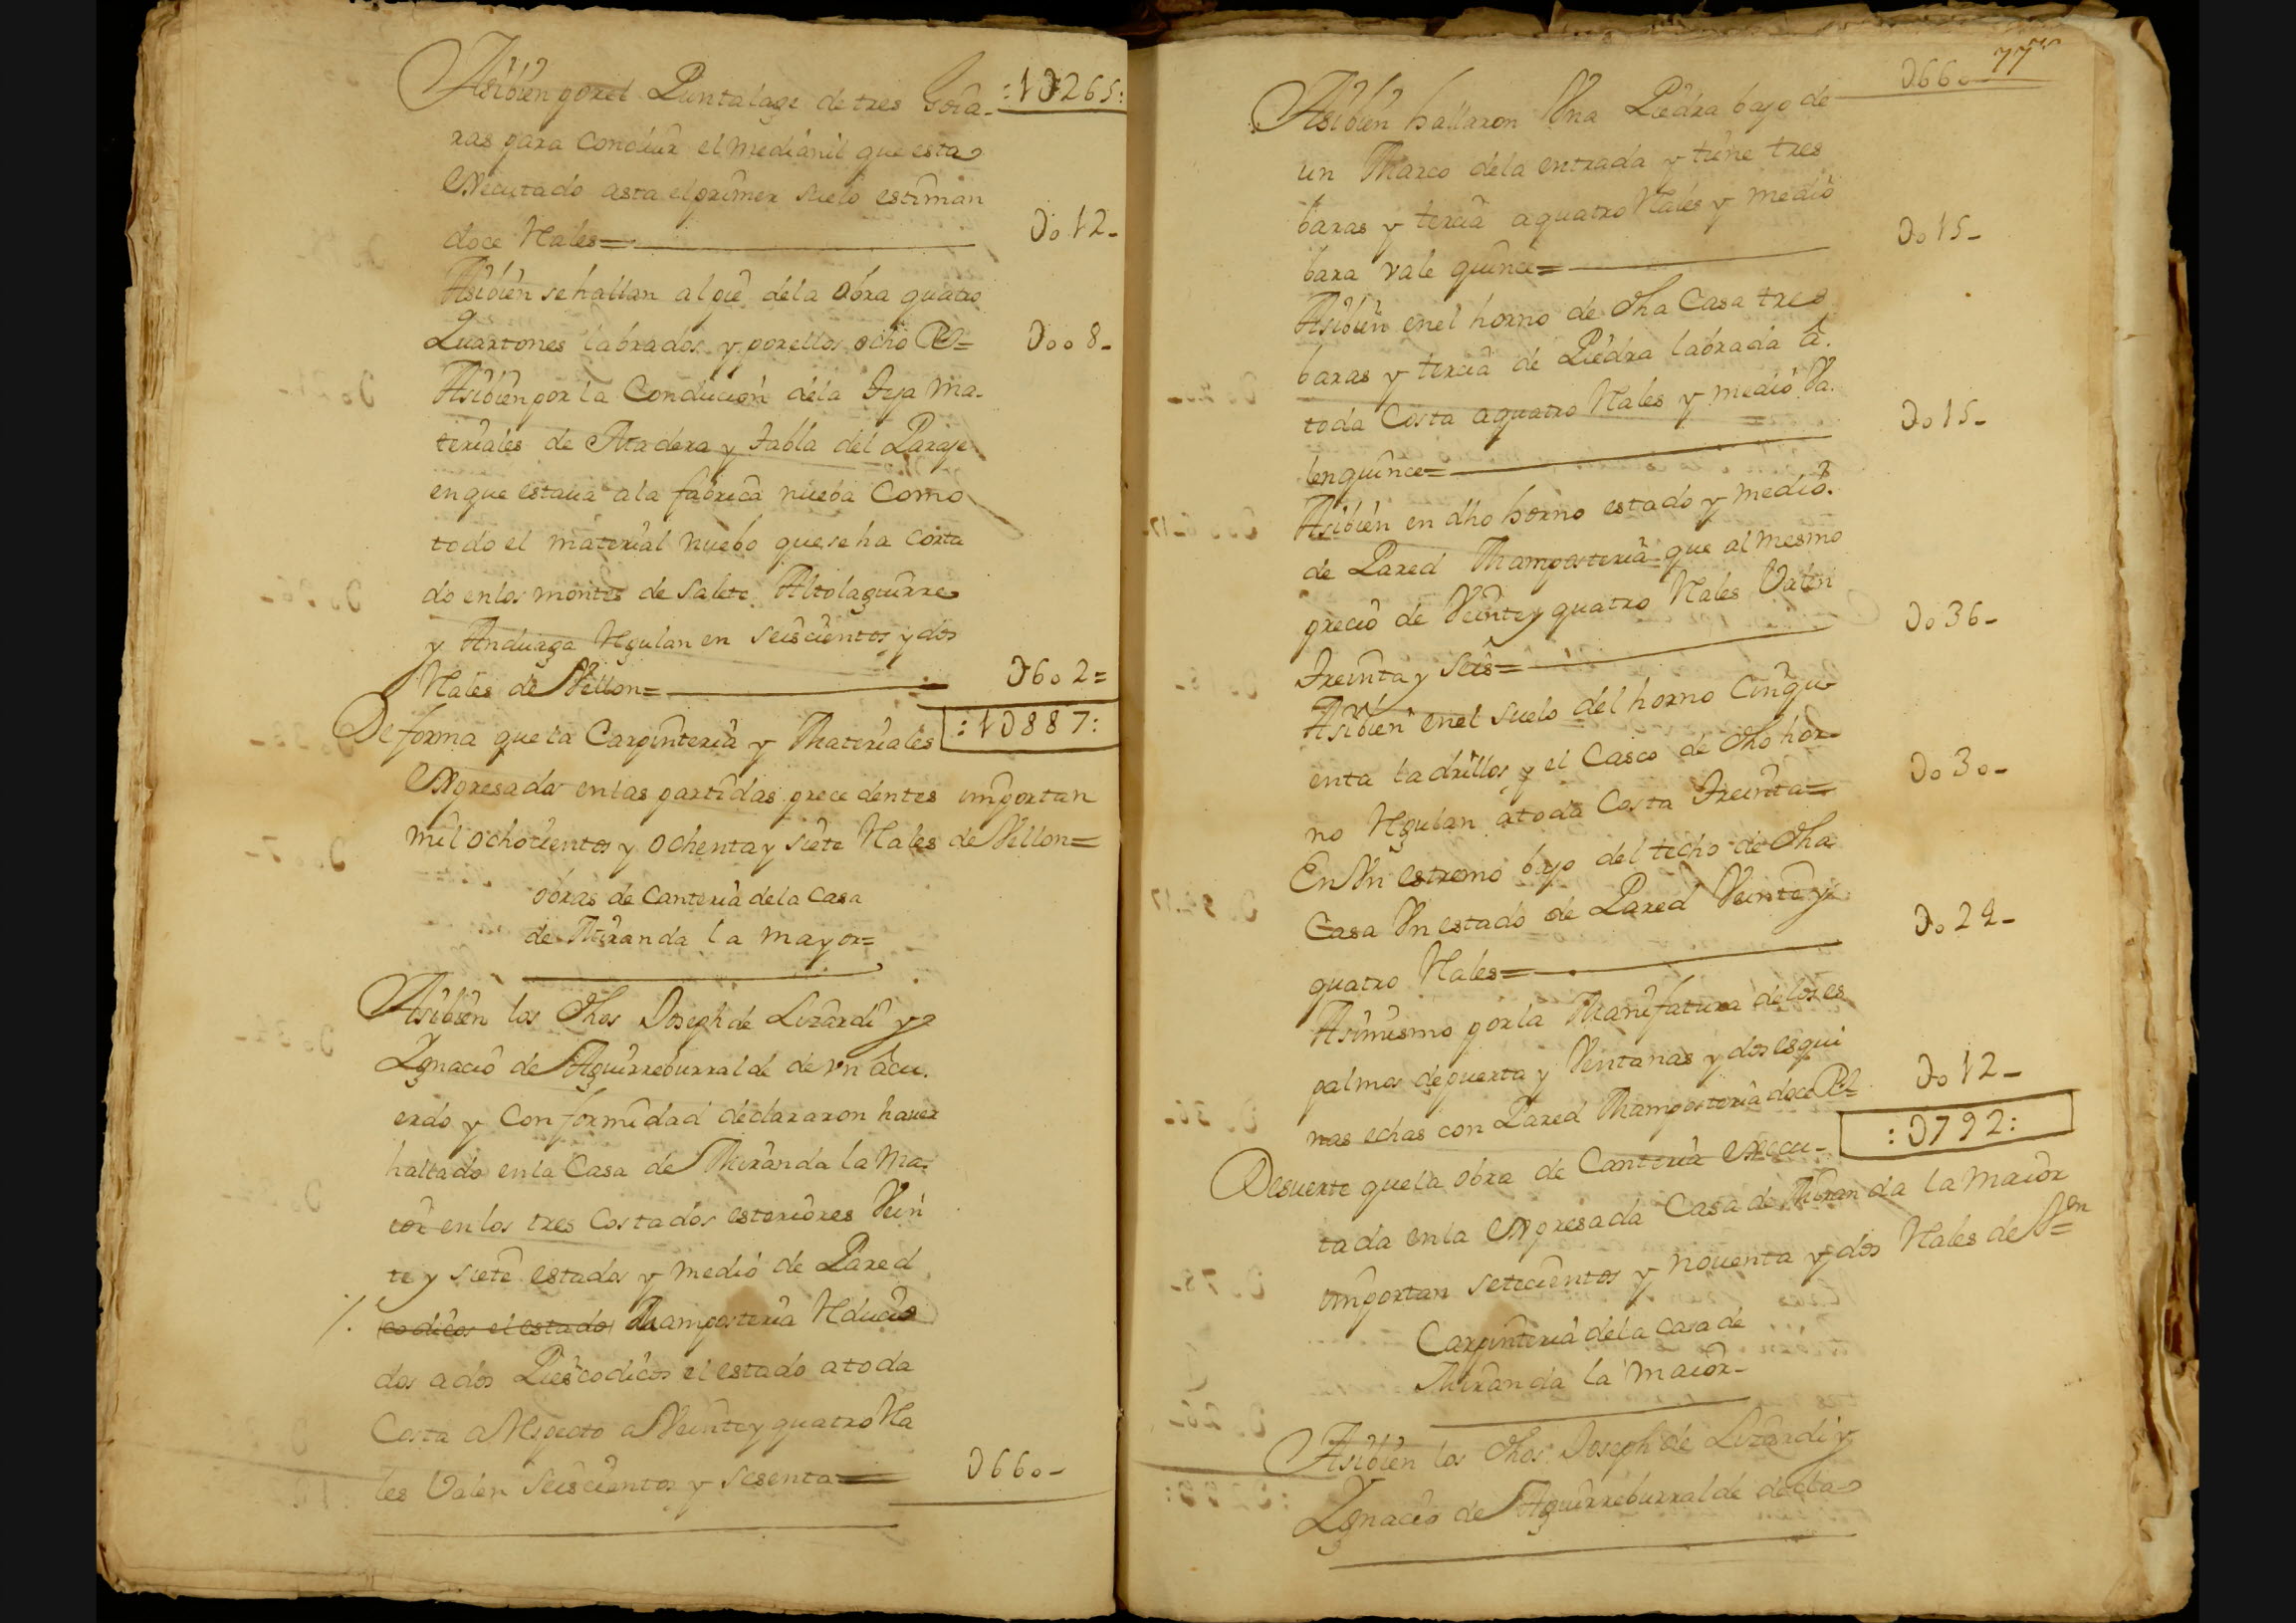 :1U265:
Asibien por el Puntalage de tres Goia-
ras para concluir el medianil que esta
Executado asta el primer suelo estiman
doce Rales= U012-
Asibien se hallan al pie dela obra quatro
Quartones labrados y por ellos ocho Rs= U008-
Asibien por la Conducion dela Teja Ma-
teriales de Madera y Tabla del Paraje
en que estaua ala fabrica nueba Como
todo el material nuebo que se ha corta
do en los montes de Salete Altolaguirre
y Anduaga Regulan en seiscientos y dos
Rales de Vellon= U602=
:1U887:
De forma que la Carpinteria y Materiales
Expresados en las partidas precedentes importan
mil ochocientos y ochenta y siete Rales de Vellon=
obras de Canteria dela Casa
de Miranda la mayor=
Asibien los dhos Joseph de Lizardi y
Ygnacio de Aguirreburralde de vn acu-
erdo y Conformidad declararon hauer
hallado en la Casa de Miranda la Ma-
ior en los tres Costados esteriores Vein
te y siete estados y medio de Pared
codicos el estado Mamposteria Reduci
dos a dos Pies codicos el estado atoda
Costa a Respecto a Veinte y quatro Ra
les Valen Seiscientos y sesenta= U660-
77
U660
Asibien hallaron Vna Piedra bajo de
un Marco dela entrada y tiene tres
baras y tercia a quatro Rales y medio
bara vale quince= U015-
Asibien en el horno de dha Casa tres
baras y tercia de Piedra labrada â
toda Costa a quatro Rales y medio Va-
len quince= U015-
Asibien en dho horno estado y medio
de Pared Mamposteria que al mesmo
precio de Veinte y quatro Rales Valen
Treinta y seis= U036-
Asibien en el suelo del horno Cinqu-
enta ladrillos y el Casco de dho hor-
no Regulan atoda Costa Treinta= U030-
En Vn estremo bajo del techo de dha
Casa Vn estado de Pared Veinte y
quatro Rales= U024-
Asimismo por la Manifatura de los es
palmos de puerta y Ventanas y dos esqui
nas echas con Pared Mamposteria doce Rs= U012-
:U792:
De suerte que la obra de Canteria Execu-
tada en la Expresada Casa de Miranda la Maior
importan setecientos y nouenta y dos Rales de Von=
Carpinteria dela Casa de
Miranda la Maior-
Asibien los dhos Joseph de Lizardi y
Ygnacio de Aguirreburralde decla-